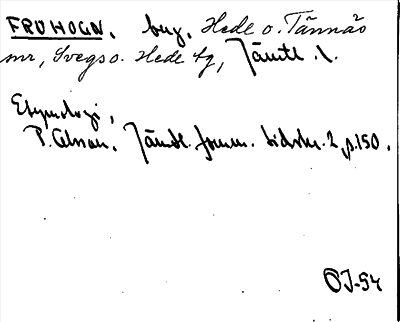 FRUHOGN. bng. Hede o. Tännäs
snr, Svegs o. Hede tg, Jämtl. l.
Etymologi,
P. Olsson. Jämtl. fornm. tidskr. 2, p. 150.
OJ-54